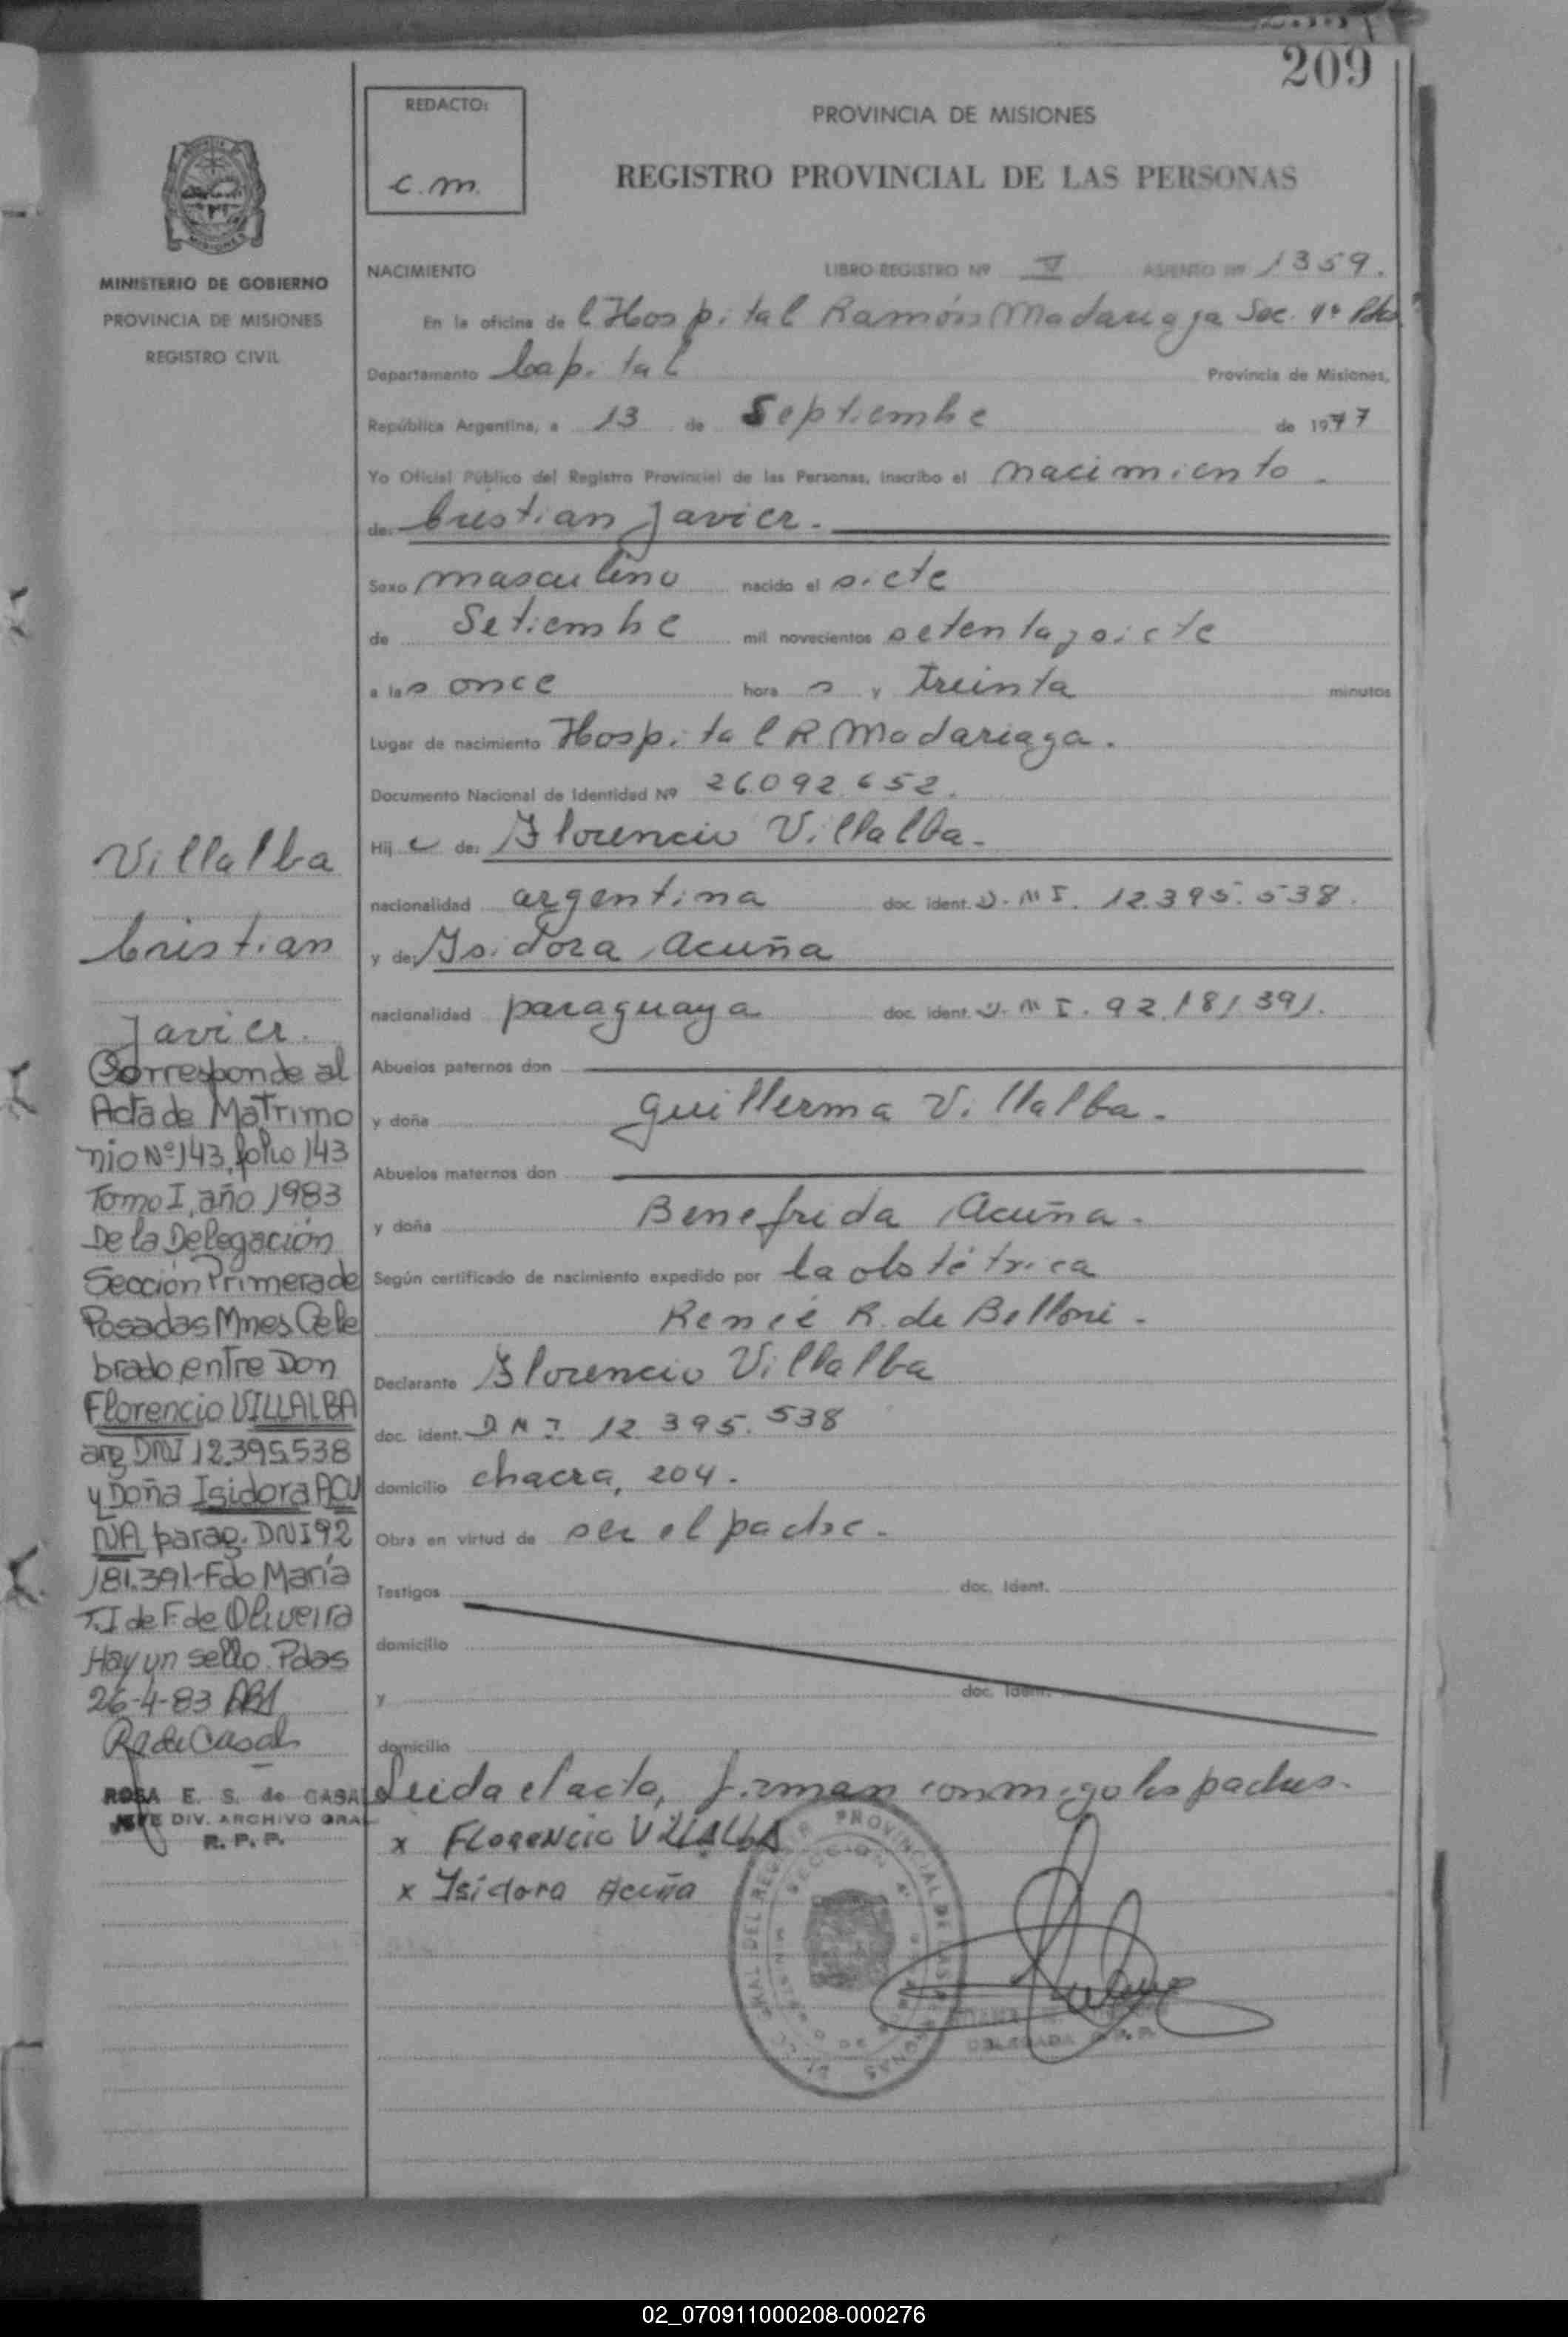 209
REDACTO:
c.m.
PROVINCIA DE MISIONES
REGISTRO PROVINCIAL DE LAS PERSONAS
MINISTERIO DE GOBIERNO
PROVINCIA DE MISIONES
REGISTRO CIVIL
NACIMIENTO LIBRO REGISTRO Nº V ASIENTO Nº 1359.
En la oficina de l Hospital Ramón Madariaga Sec. 4ª Pdas
Departamento Capital Provincia de Misiones,
República Argentina, a 13 de Septiembre de 1977
Yo Oficial Público del Registro Provincial de las Personas, inscribo el nacimiento.
de: Cristian Javier.
Sexo masculino nacido el siete
de Setiembre mil novecientos setenta y siete
a las once hora s y treinta minutos
Lugar de nacimiento Hospital R. Madariaga.
Documento Nacional de Identidad Nº 26.092.652.
Hij o de: Florencio Villalba.
nacionalidad argentina doc. ident. D.N.I. 12.395.538.
y de: Isidora Acuña
nacionalidad paraguaya doc. ident. D.N.I. 92.181.391.
Abuelos paternos don
y doña Guillerma Villalba.
Abuelos maternos don
y doña Benefrida Acuña.
Según certificado de nacimiento expedido por la obstétrica
Reneé R. de Belloni.
Declarante Florencio Villalba
doc. ident. D N I 12.395.538
domicilio chacra, 204.
Obra en virtud de ser el padre.
Testigos doc. ident.
domicilio
y doc. ident.
domicilio
Leida el acta, firman conmigo los padres.
x FLORENCIO VILLALBA
x Isidora Acuña
Villalba
Cristian
Javier.
Corresponde al
Acta de Matrimo
nio Nº 143, folio 143
Tomo I, año 1983
De la Delegación
Sección Primera de
Posadas Mnes Cele
brado entre Don
Florencio VILLALBA
arg DNI 12.395538
y Doña Isidora ACU
ÑA parag. DNI 92
181.391-Fdo María
T.I de F. de Oliveira
Hay un sello. Pdas
26-4-83
R de Casals
ROSA E. S. de CASAL
JEFE DIV. ARCHIVO GRAL
R. P. P.
DELEGADA R.P.P.
02_070911000208-000276